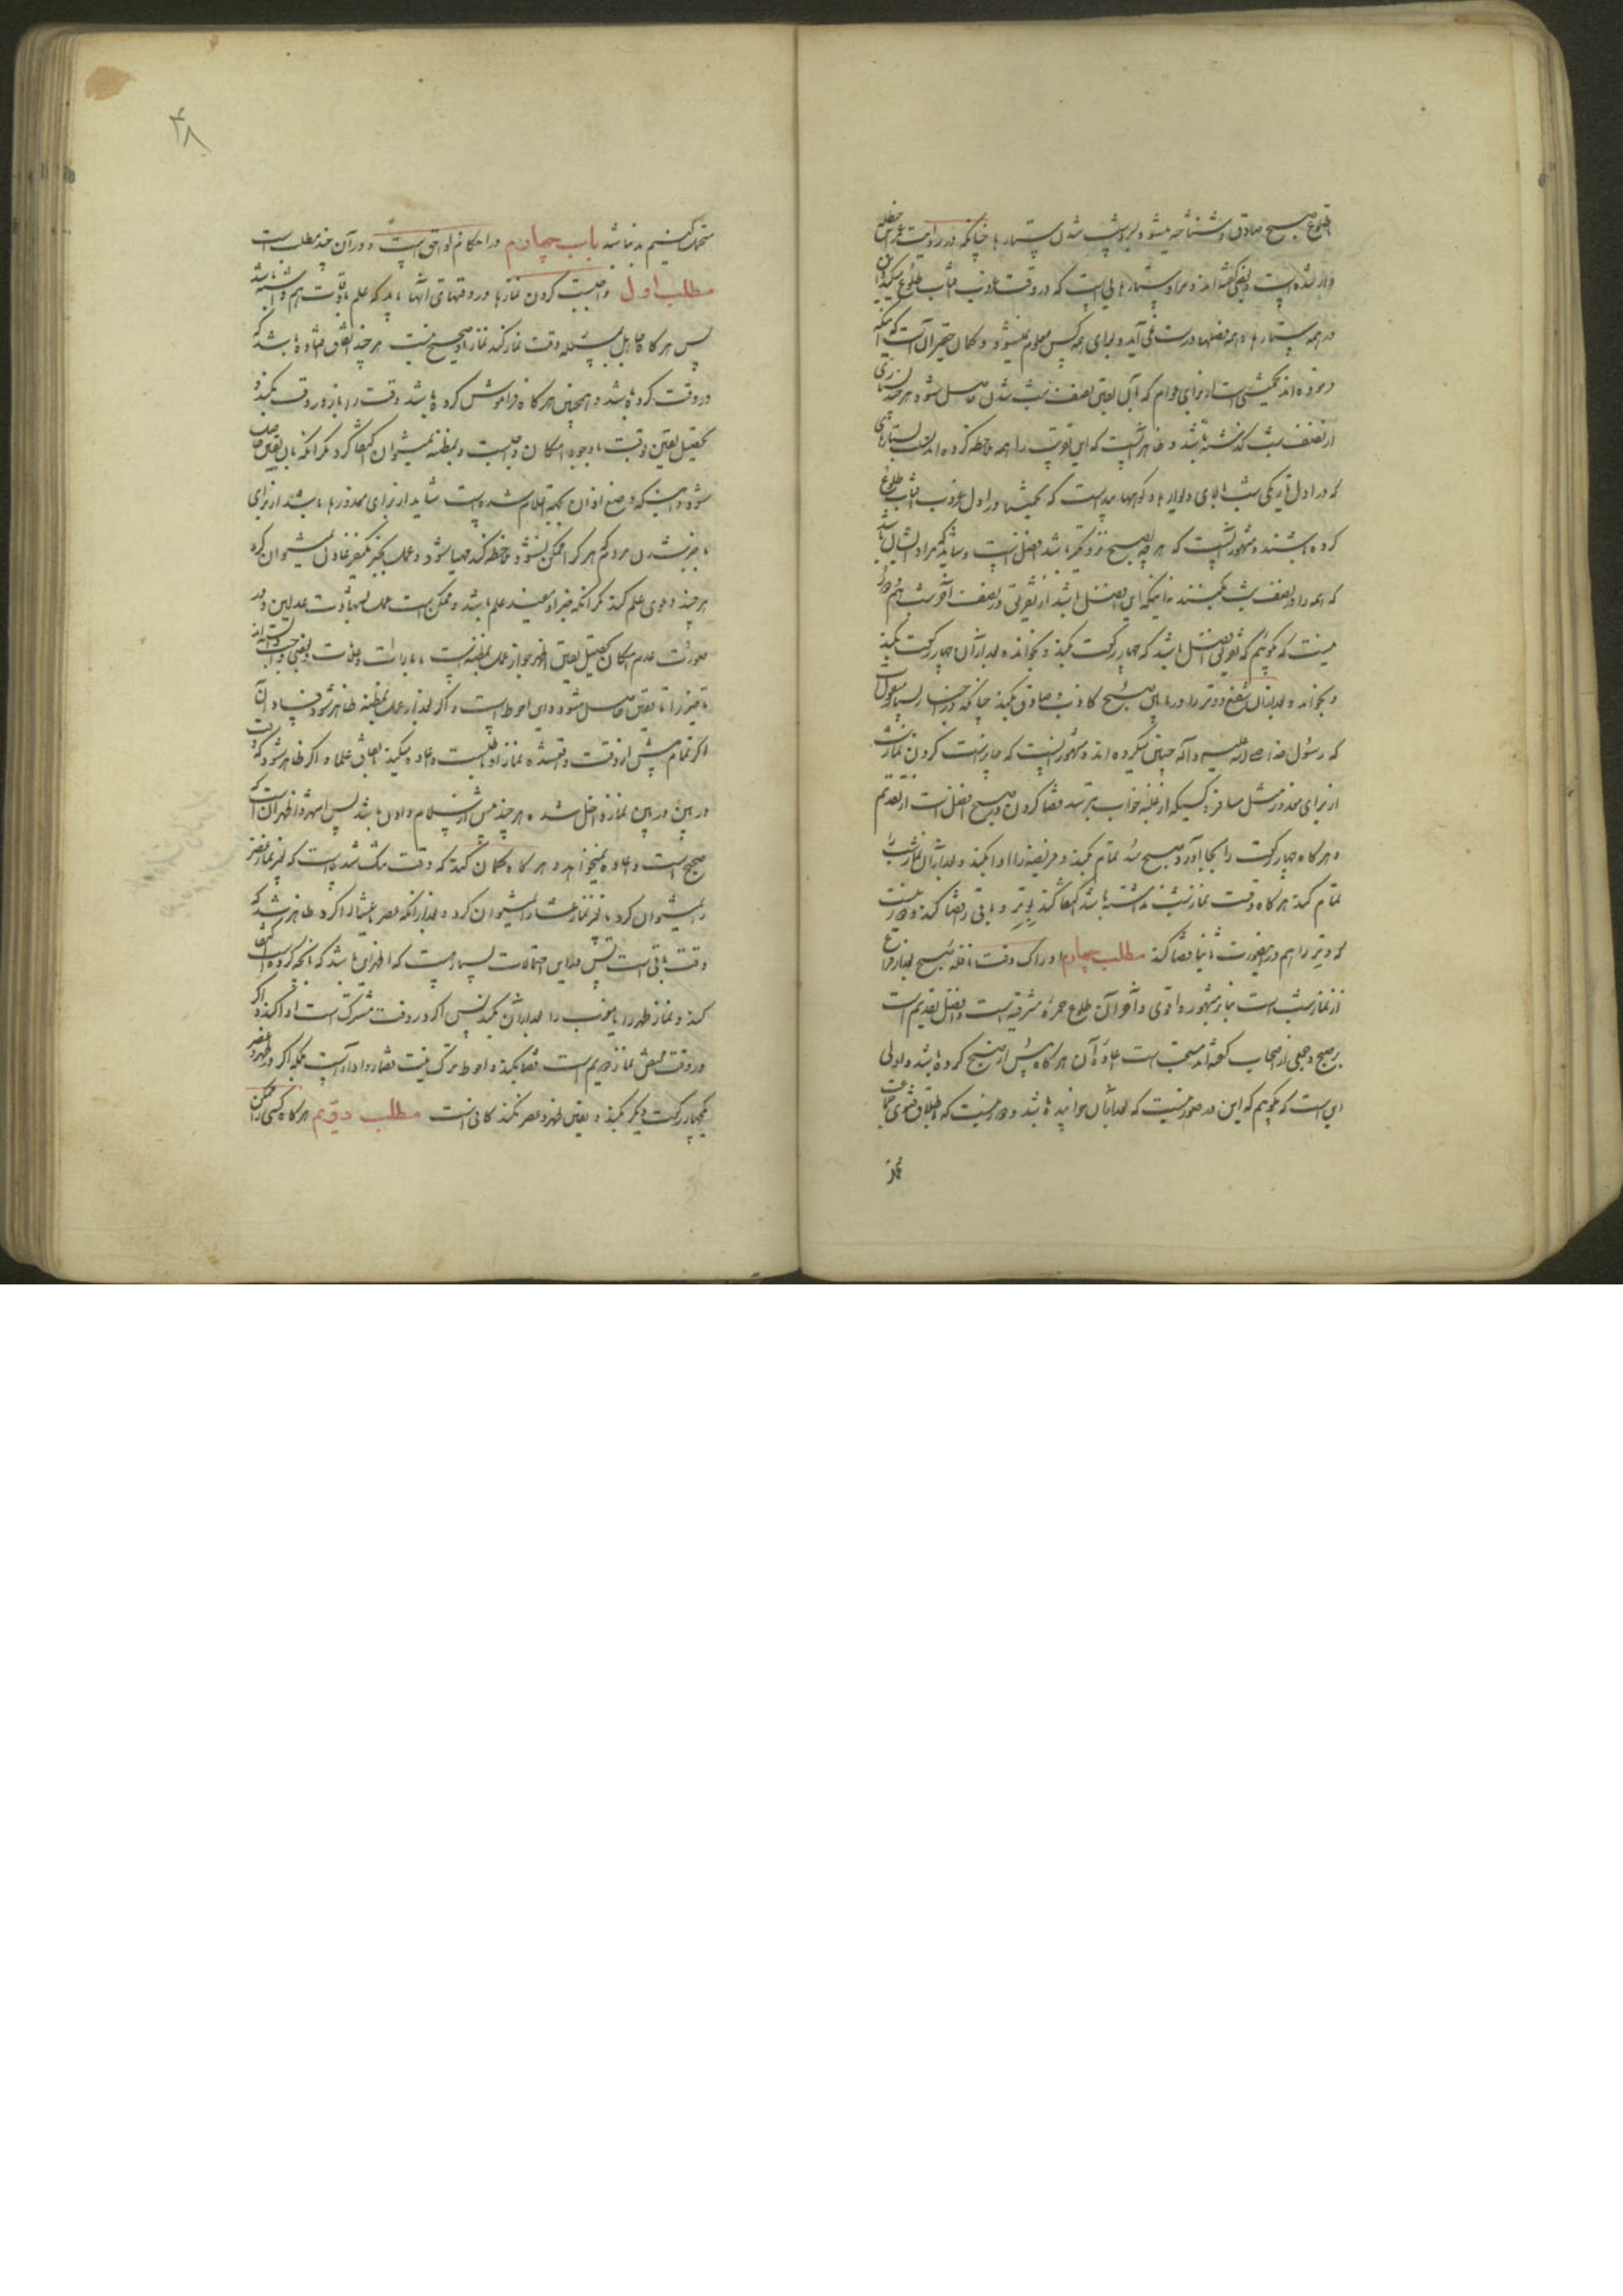 طلوع صبح صادق و شناخته میشود نصف شب شدن ستارها چنانکه در روایت عمر بن حنظله
وارد شده است و بعضی گفته‌اند مراد ستارهایی است که در وقت غروب آفتاب طلوع میکند این
در همه ستارها و همه فصلها درست نمی آید و برای همه کس معلوم نمیشود و کمان حقیر آن است که اینکه
فرموده‌اند از برای عوام که بآن یقین بنصف شب شدن حاصل شود هر چند
از نصف شب گذشته باشد و ظاهر آنست که این تقویت را همه ملاحظه کرده‌اند
که در اول تاریکی شب بالای دیوارها و کوهها پیداست که در اول غروب آفتاب طلوع
کرده باشند و مشهور آنست که هر چه بصبح نزدیکتر باشد افضل است و شاید که مراد ایشان باشد
که همه را در نصف شب نکنند با اینکه این افضل باشد از تفریق در نصف آخر شب هم و دور
نیست که بگوئیم که تفریق افضل باشد که چهار رکعت بکند و بخوابد و بعد از آن چهار رکعت بکند
و بخوابد و بعد از آن شفع و وتر را در مابین صبح کاذب و صادق بکند چنانکه در اخبار بسیار منقول است
که رسول خدا صلی الله علیه و آله چنین میکرده‌اند و مشهور آنست که جایز نیست کردن نماز شب
از برای معذور مثل مسافر و کسیکه از غلبه خواب بترسد و قضا کردن در صبح افضل است از تقدیم
و هرگاه چهار رکعت را بجا آورد و صبح شد تمام بکند و فریضه را ادا بکند و بعد از آن نماز شب را
تمام کند هرگاه وقت نماز شب نداشته باشد اکتفا کند بوتر و باقی را قضا کند و دور نیست
که وتر را هم در اینصورت ثانیا قضا کند مطلب چهارم اول وقت نافله صبح بعد از فراغ
از نماز شب است بنابر مشهور و اقوی و آخر آن طلوع حمرهٔ مشرقیه است و افضل تقدیم است
بر صبح و جمعی از اصحاب گفته‌اند مستحب است اعادهٔ آن هرگاه پیش از صبح کرده باشد و اولی
این است که بگوئیم که این در صورتیست که بعد از آن خوابیده باشد و دور نیست که اطلاق فتوی جماعت
نماز
۴۸
متحمل کنیم بدنباشد باب چهارم در احکام اوقات است و در آن چند مطلب است
مطلب اول واجبست کردن نمازها در وقتهای آنها باید که علم باوقات هم داشته باشد
پس هرگاه جاهل بمسئله وقت نماز کند نماز او صحیح نیست هر چند اتفاق افتاده باشد که
در وقت کرده باشد و همچنین هرگاه فراموش کرده باشد وقت را و نماز در وقت بکند و
تحصیل یقین وقت با وجود امکان واجبست و بمظنه نمیشود اکتفا کرد مگر آنکه بآن یقین حاصل
شود و اینکه وضع اذان بجهت اعلام شده است شاید از برای معذورها باشد از برای
باخبر شدن مردم که هر کرا ممکن نشود ملاحظه کند مهیا شود و عمل بخبر یکنفر عادل نمیتوان کرد
هر چند دعوی علم کند مگر آنکه خبر او مفید علم باشد و ممکن است عمل بشهادت عدلین و در
صورت عدم امکان تحصیل یقین اظهر جواز عمل بمظنه است بامارات و علامات و بعضی واجب دانسته‌اند
تاخیر را تا یقین حاصل شود و این احوط است و اگر بعد از عمل بمظنه ظاهر شود فساد آن
اگر تمام پیش از وقت واقع شده نماز او باطلست و اعاده میکند باتفاق علما و اگر ظاهر شود که وقت
در بین نماز داخل شده هر چند پیش از سلام دادن باشد پس اشهر و اظهر آن است که
صحیح است و اعاده نمیخواهد و هرگاه گمان کند که وقت تنگ شده است که بغیر نماز عصر
را نمیتوان کرد یا بغیر نماز عشا را نمیتوان کرد و بعد از آنکه عصر یا عشا را کرد ظاهر شد که
وقت باقی است پس در این احتمالات بسیار هست که اظهر این باشد که بآنچه کرده است اکتفا
کند و نماز ظهر را یا مغرب را بعد از آن بکند پس اگر در وقت مشترک است ادا کند و اگر
در وقت مختص نماز دویم است قضا بکند و احوط ترک نیت قضا و ادا است بلکه اگر در ظهر و عصر
چهار رکعت دیگر بکند و تعین ظهر و عصر نکند کافی است مطلب دویم هرگاه کسی را ممکن